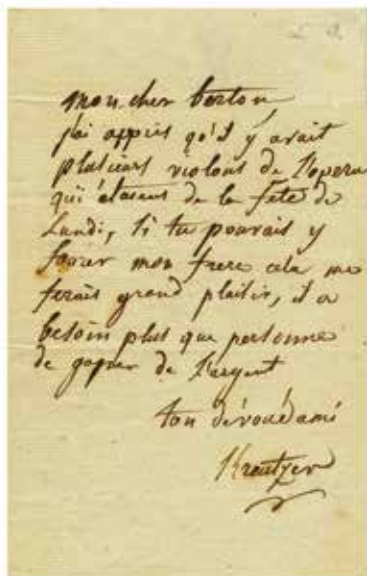 mon cher berton,
j'ai appris qu'il y avait
plusieurs violons de l'opera
qui étaient de la fête de
Lundi, si tu pouvais y
fourer mon frere cela me
ferais grand plaisir, il a
besoin plus que personne
de gagner de l'argent
ton dévoué ami
Kreutzer